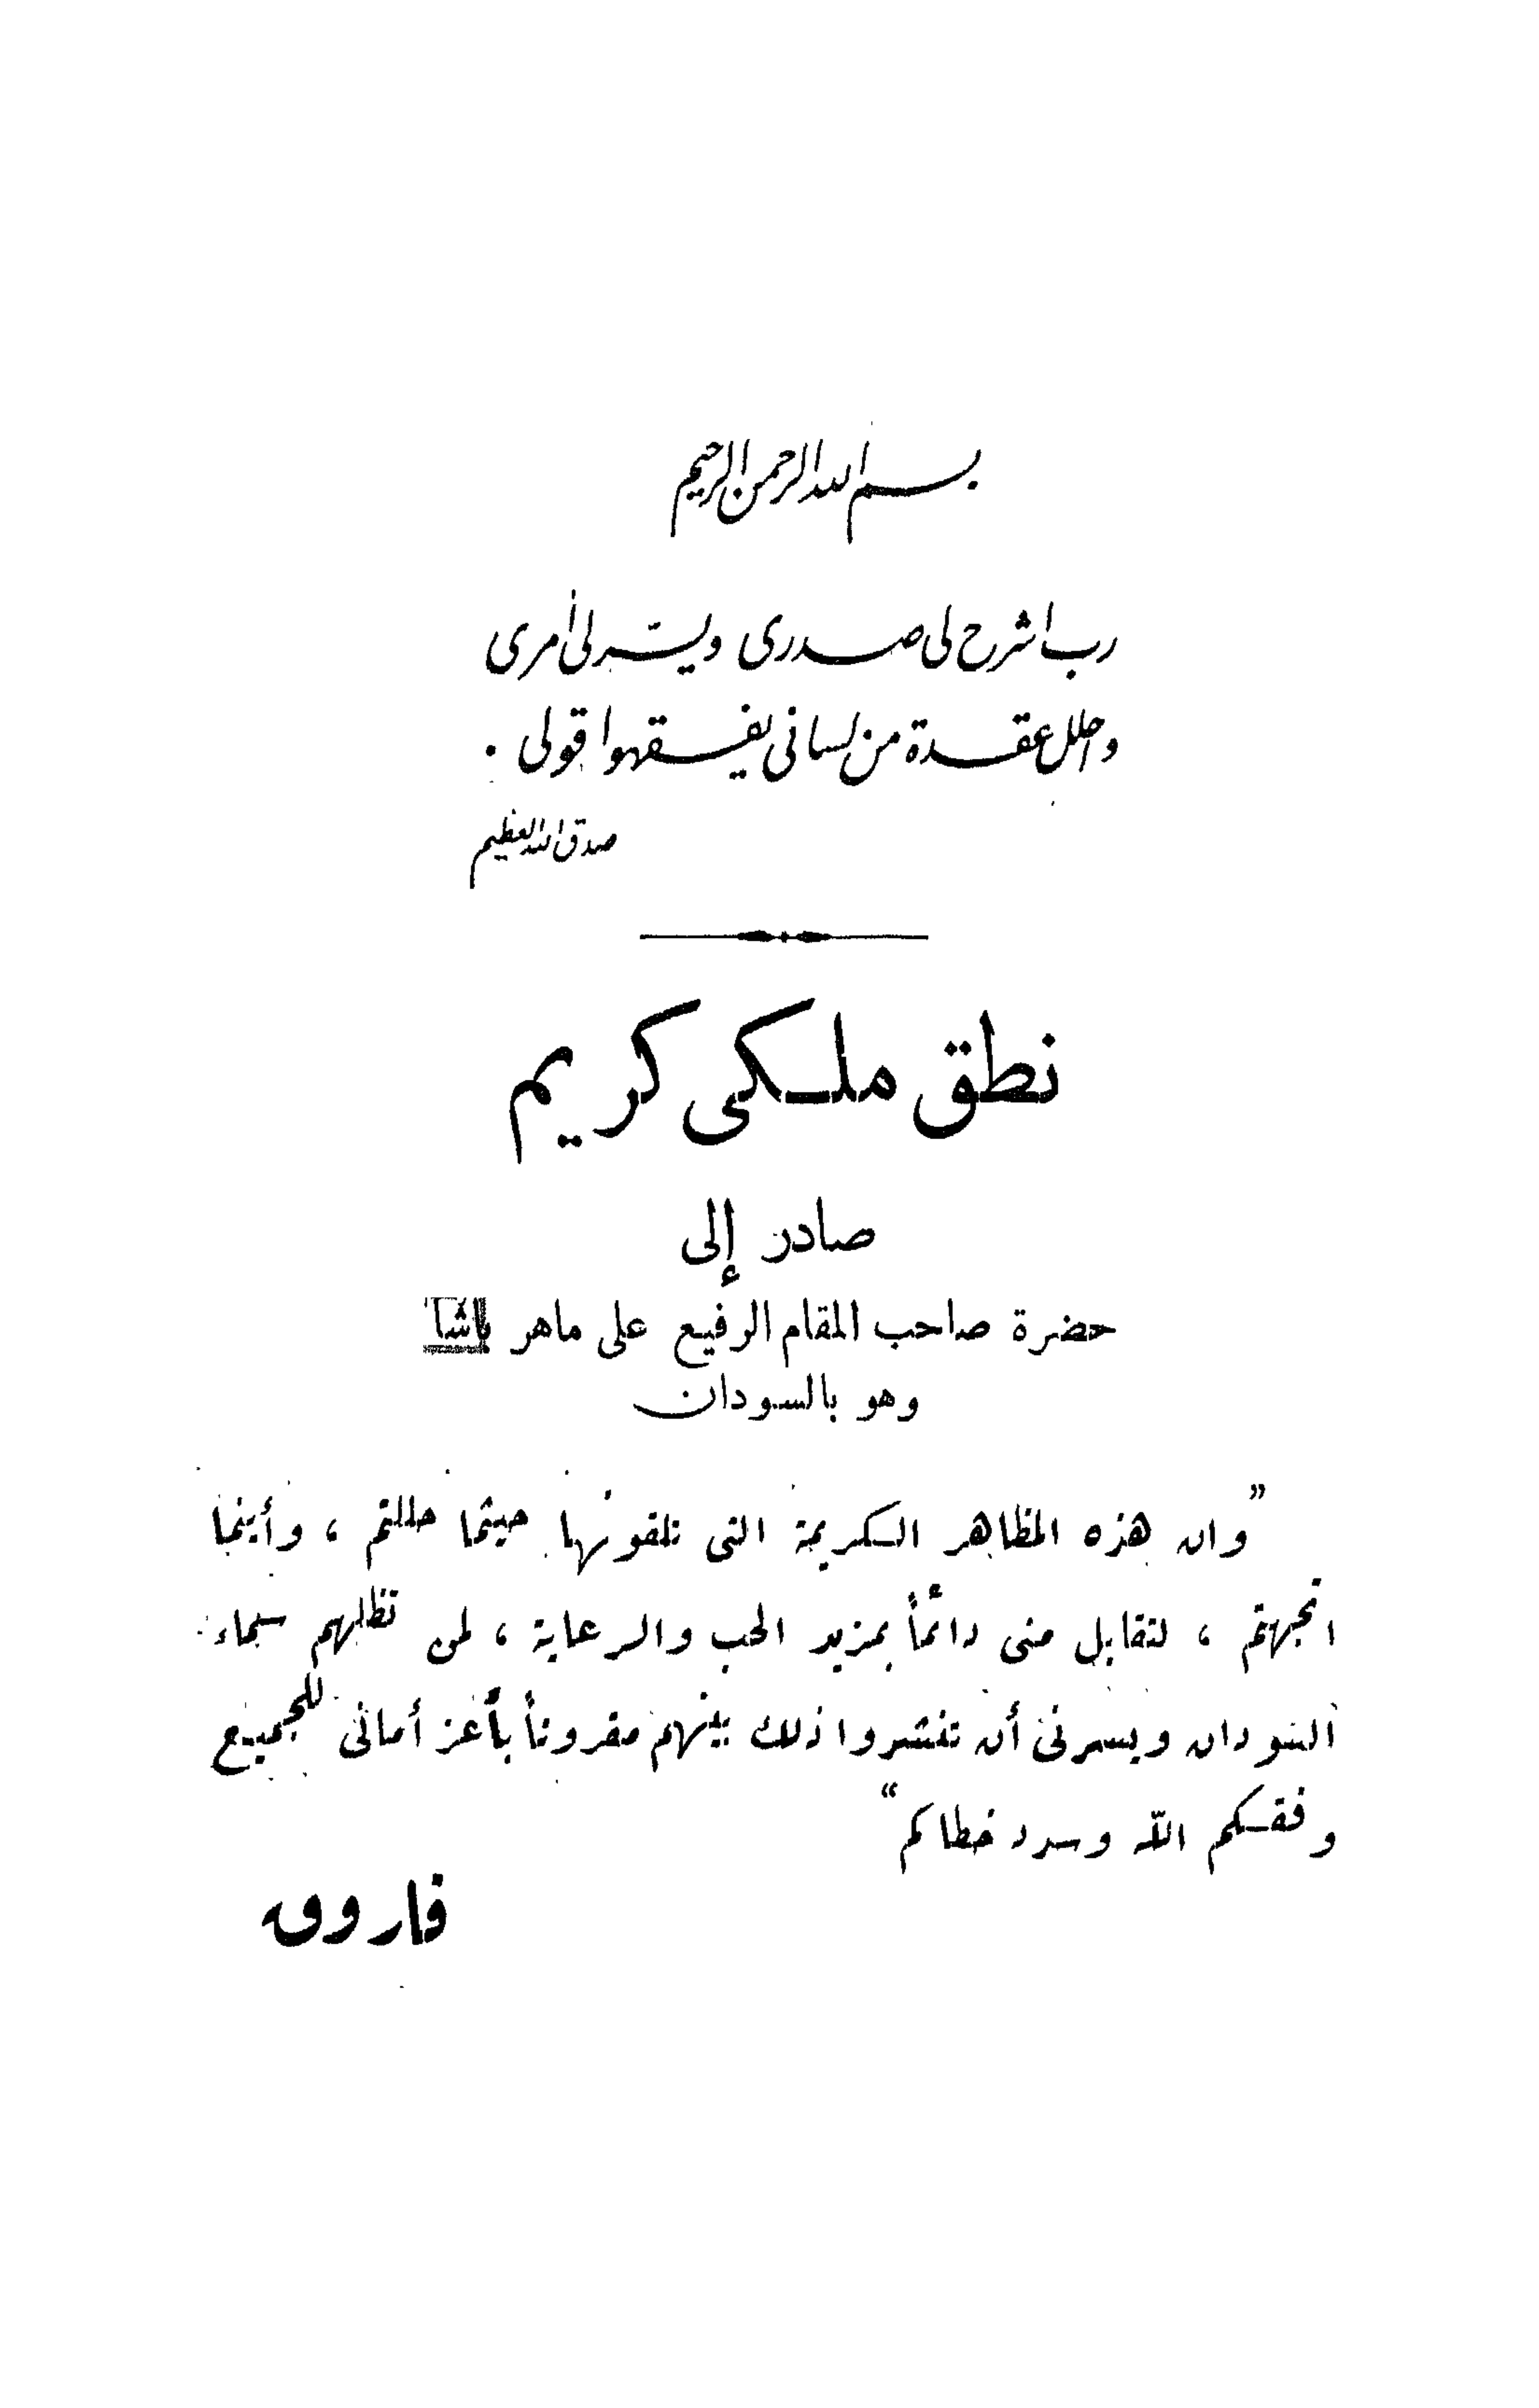 بسم الله الرحمن الرحيم
رب اشرح لى صدرى ويسّر لى أمرى
واحلل عقدة من لسانى يفقهوا قولى .
صدق الله العظيم
نطق ملكى كريم
صادر إلى
حضرة صاحب المقام الرفيع على ماهر باشا
وهو بالسودان
”وان هذه المظاهر الكريمة التى تلقونها حيثما حللتم ، وأينما
اتجهتم ، لتقابل منى دائماً بمزيد الحب والرعاية ، لمن تظلهم سماء
السودان ويسرنى أن تنشروا ذلك بينهم مقروناً بأعز أمانى للجميع
وفقكم الله وسدد خطاكم“
فاروق